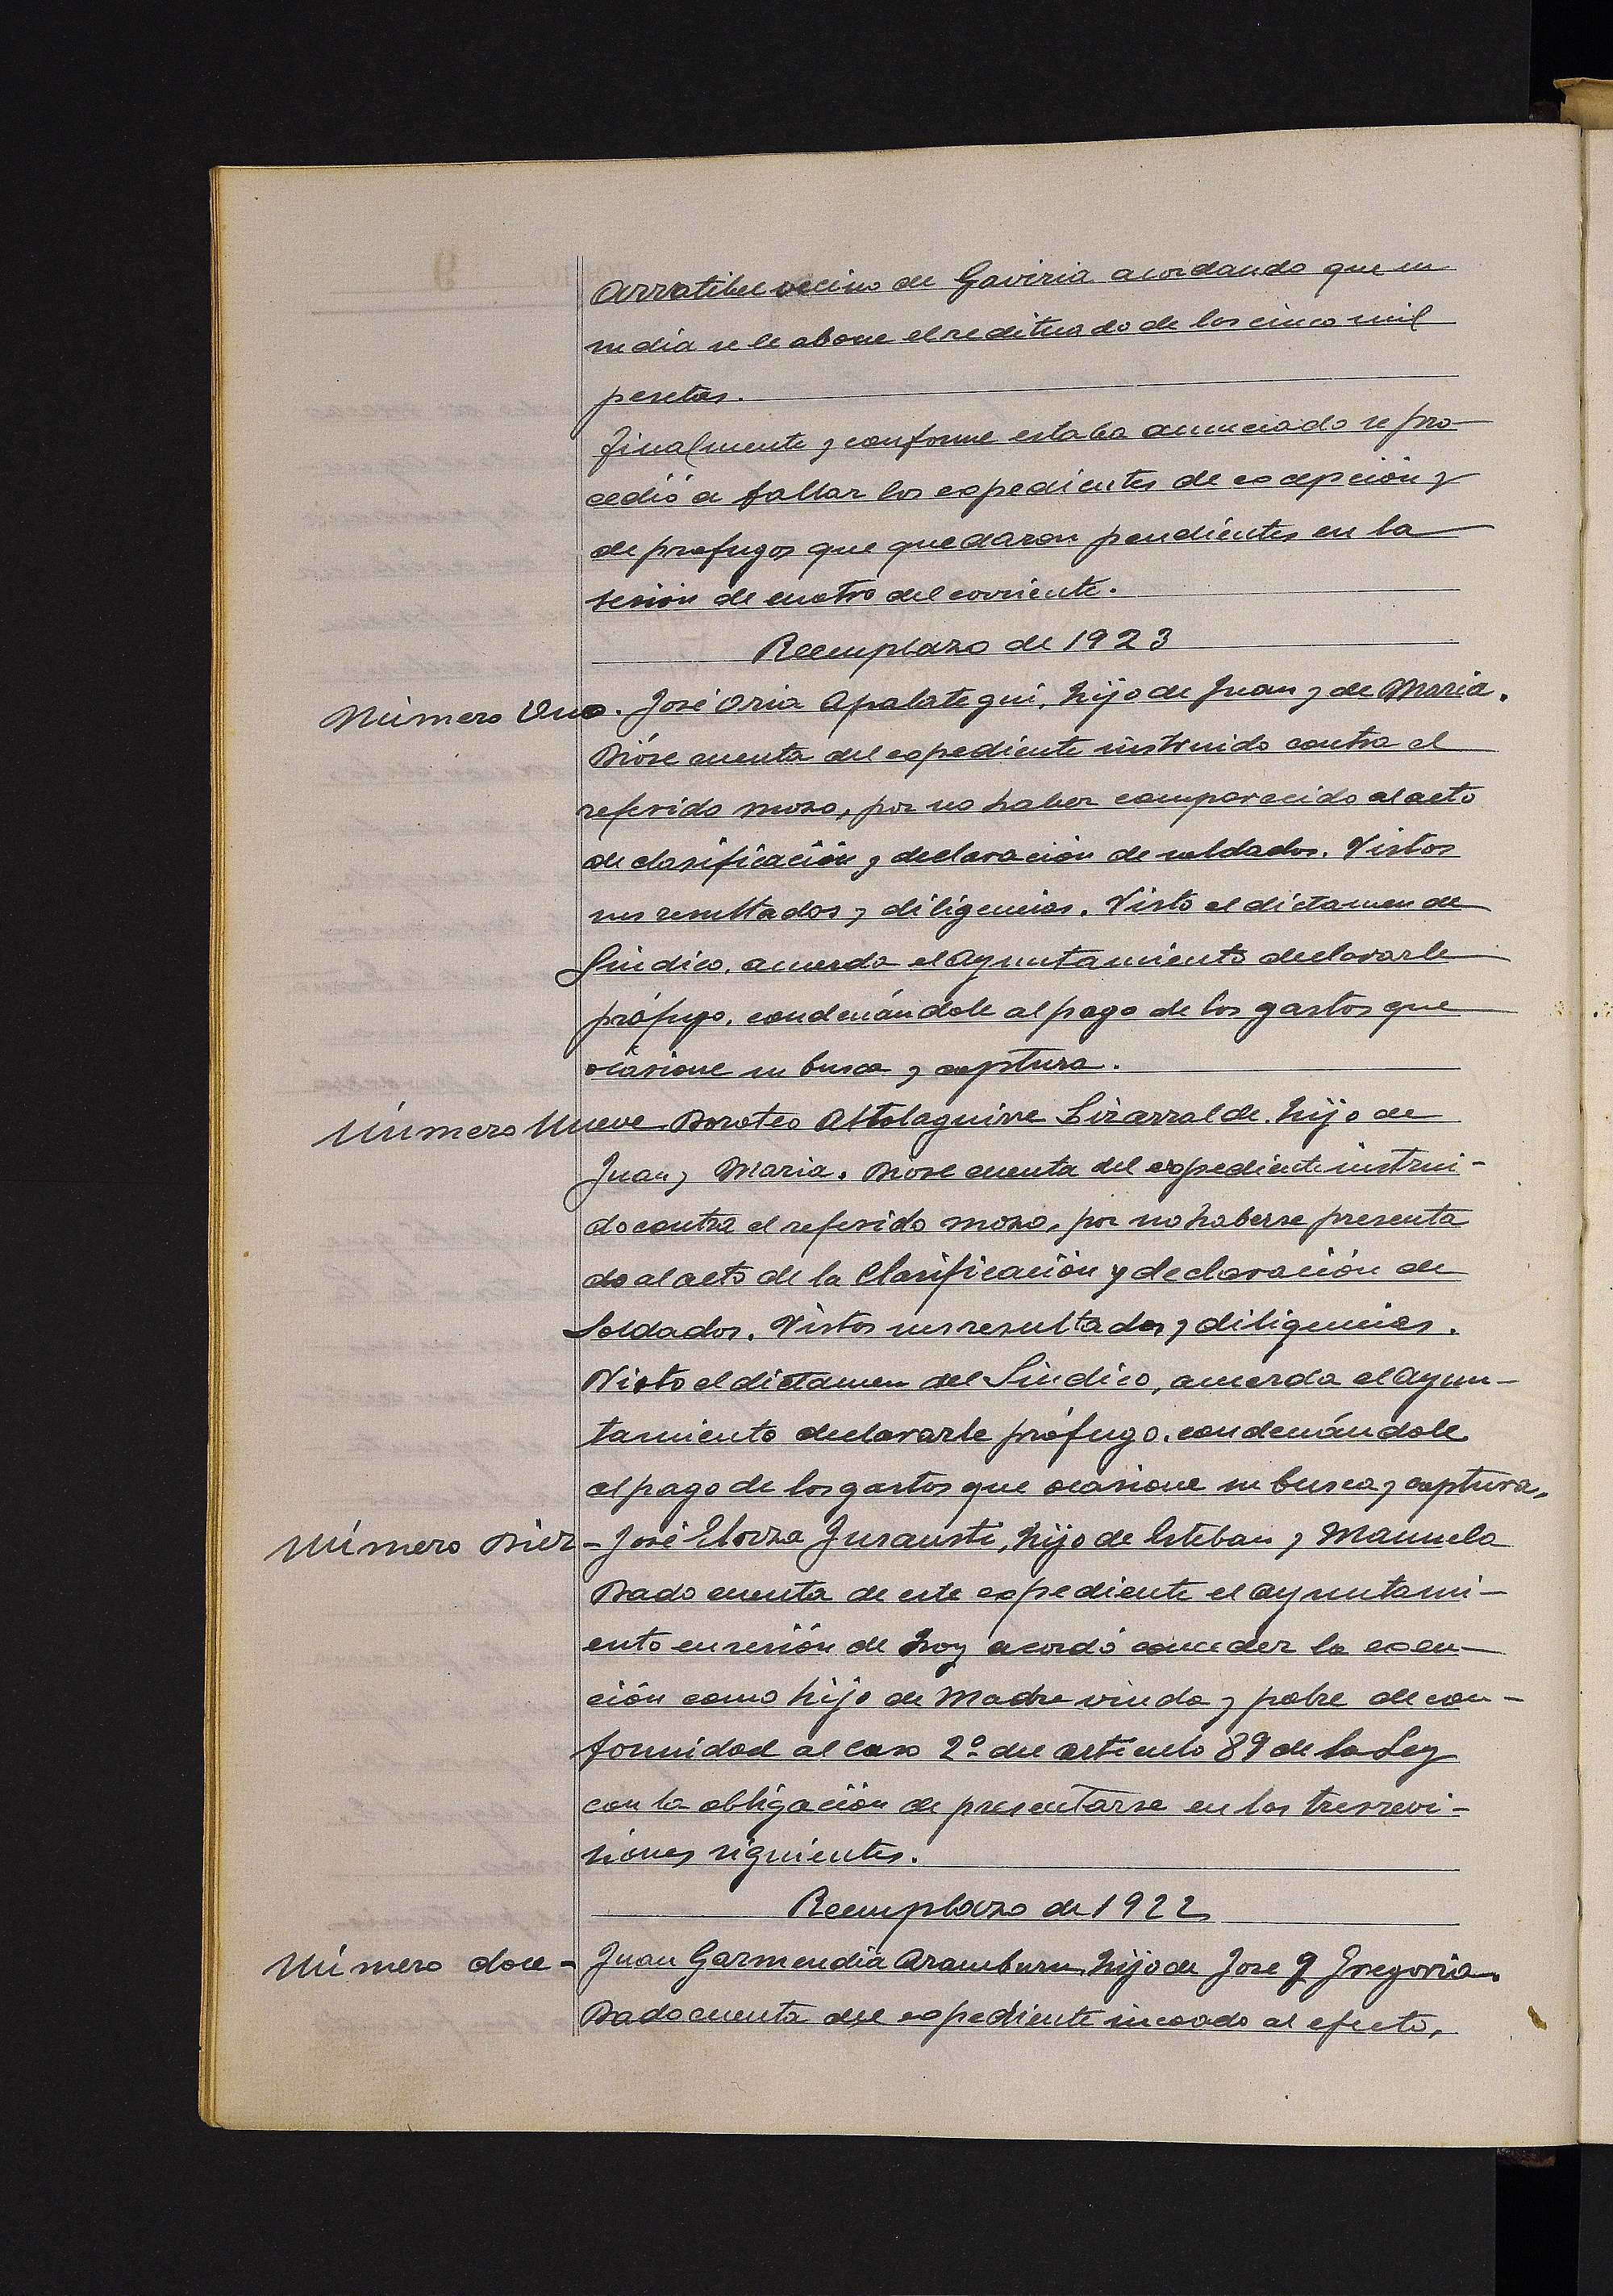 Arratibel vecino de Gaviria acordando que en
su dia se le abone el redituado de las cinco mil
pesetas.
Finalmente y conforme estaba anunciado se pro-
cedió a fallar los expedientes de excepción y
de profugos que quedaron pendientes en la
sesión de cuatro del corriente.
Reemplazo de 1923
Número Uno. José Oria Apalategui, hijo de Juan y de Maria.
Dióse cuenta del expediente instruido contra el
referido mozo, por no haber comparecido al acto
de clasificación y declaración de soldados. Vistos
sus resultados y diligencias. Visto el dictamen de
Sindico, acuerda el Ayuntamiento declararle
prófugo, condenándole al pago de los gastos que
ocasione su busca y captura.
Número Nueve Doroteo Altolaguirre Lizarralde. hijo de
Juan y Maria. Diose cuenta del expediente instrui-
do contra el referido mozo, por no haberse presenta
do al acto de la Clasificación y declaración de
Soldados. Vistos sus resultados y diligencias.
Visto el dictamen del Sindico, acuerda el Ayun-
tamiento declararle prófugo, condenándole
al pago de los gastos que ocasione su busca y captura.
Número Diez - José Elorza Insausti, hijo de Esteban y Manuela
Dado cuenta de este expediente el Ayuntami-
ento en sesión de hoy acordó conceder la exen-
ción como hijo de Madre viuda y pobre de con-
formidad al caso 2º del artículo 89 de la Ley
con la obligación de presentarse en las tres revi-
siones siguientes.
Reemplazo de 1922
Número doce - Juan Garmendia Aramburu, hijo de Jose y Gregoria.
Dado cuenta del expediente incoado al efecto,